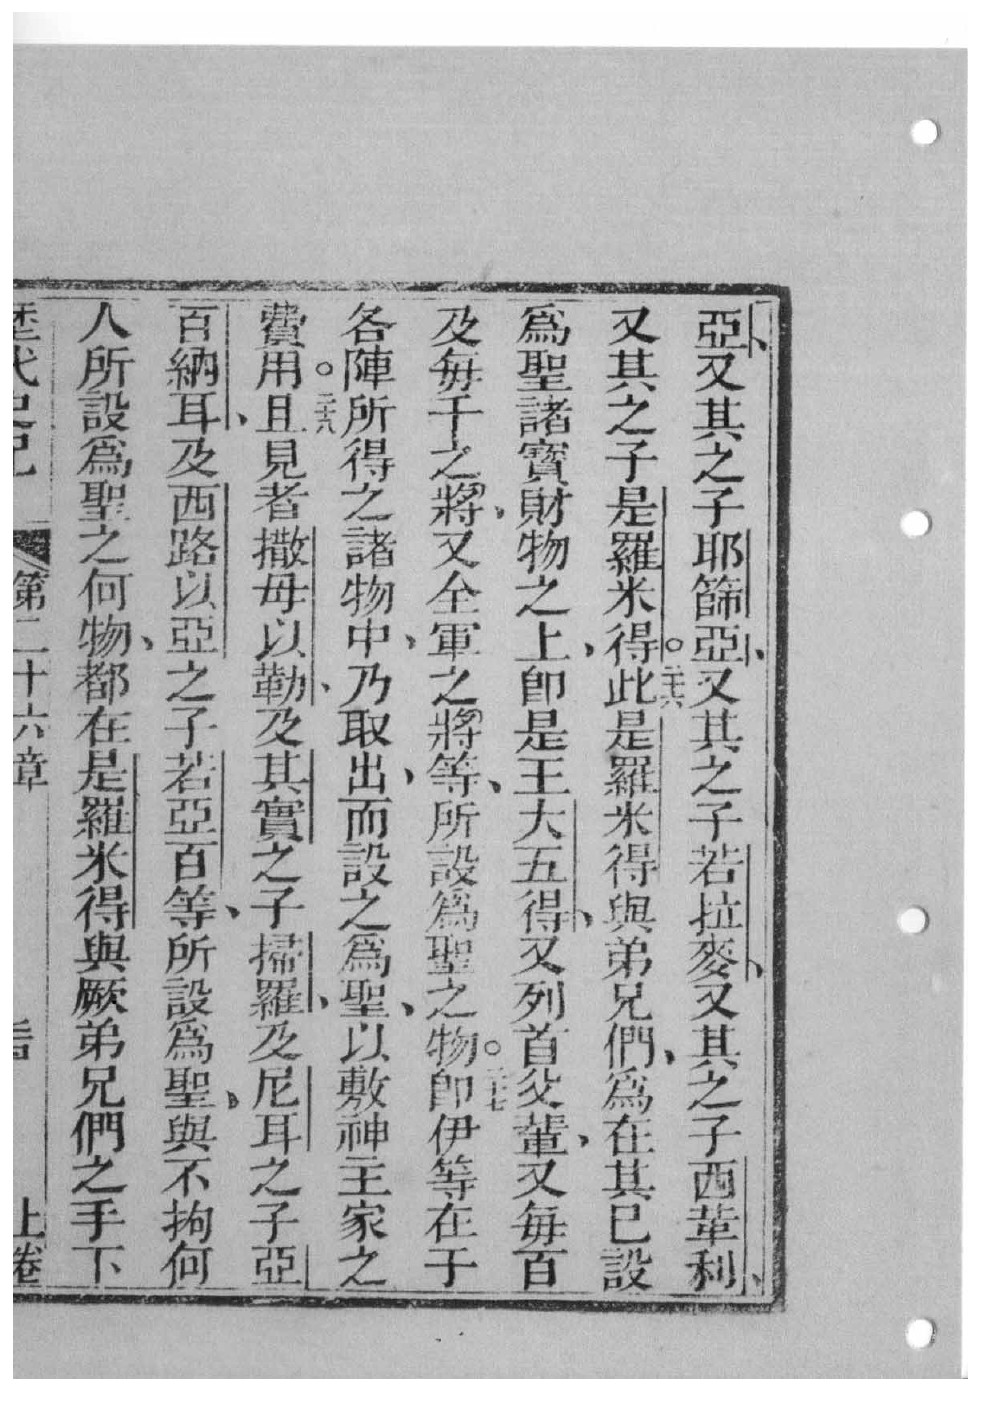 亞、又其之子耶篩亞、又其之子若拉麥、又其之子西輩利、
又其之子是羅米得。二十六此是羅米得與弟兄們、爲在其已設
爲聖諸寶財物之上、卽是王大五得、又列首父輩、又每百
及每千之將、又全軍之將等、所設爲聖之物。二十七卽伊等在于
各陣所得之諸物中、乃取出、而設之爲聖、以敷神主家之
費用。二十八且見者撒母以勒、及其實之子掃羅、及尼耳之子亞
百納耳、及西路以亞之子若亞百等、所設爲聖、與不拘何
人所設爲聖之何物、都在是羅米得與厥弟兄們之手下
歷代史記 第二十六章 上卷